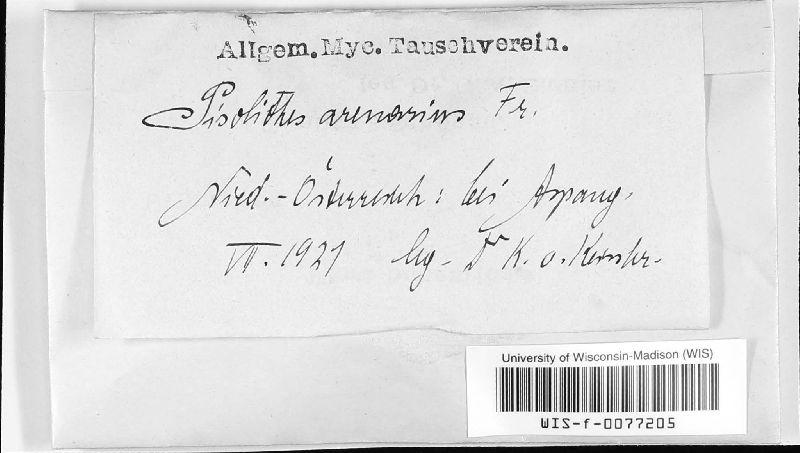 Allgem. Myc. Tauschverein.
Pisolithes arenarius Fr.
Nied.-Österreich: bei Aspang.
VII. 1921 leg. Dr K. v. Keissler.
University of Wisconsin-Madison (WIS)
WIS-f-0077205